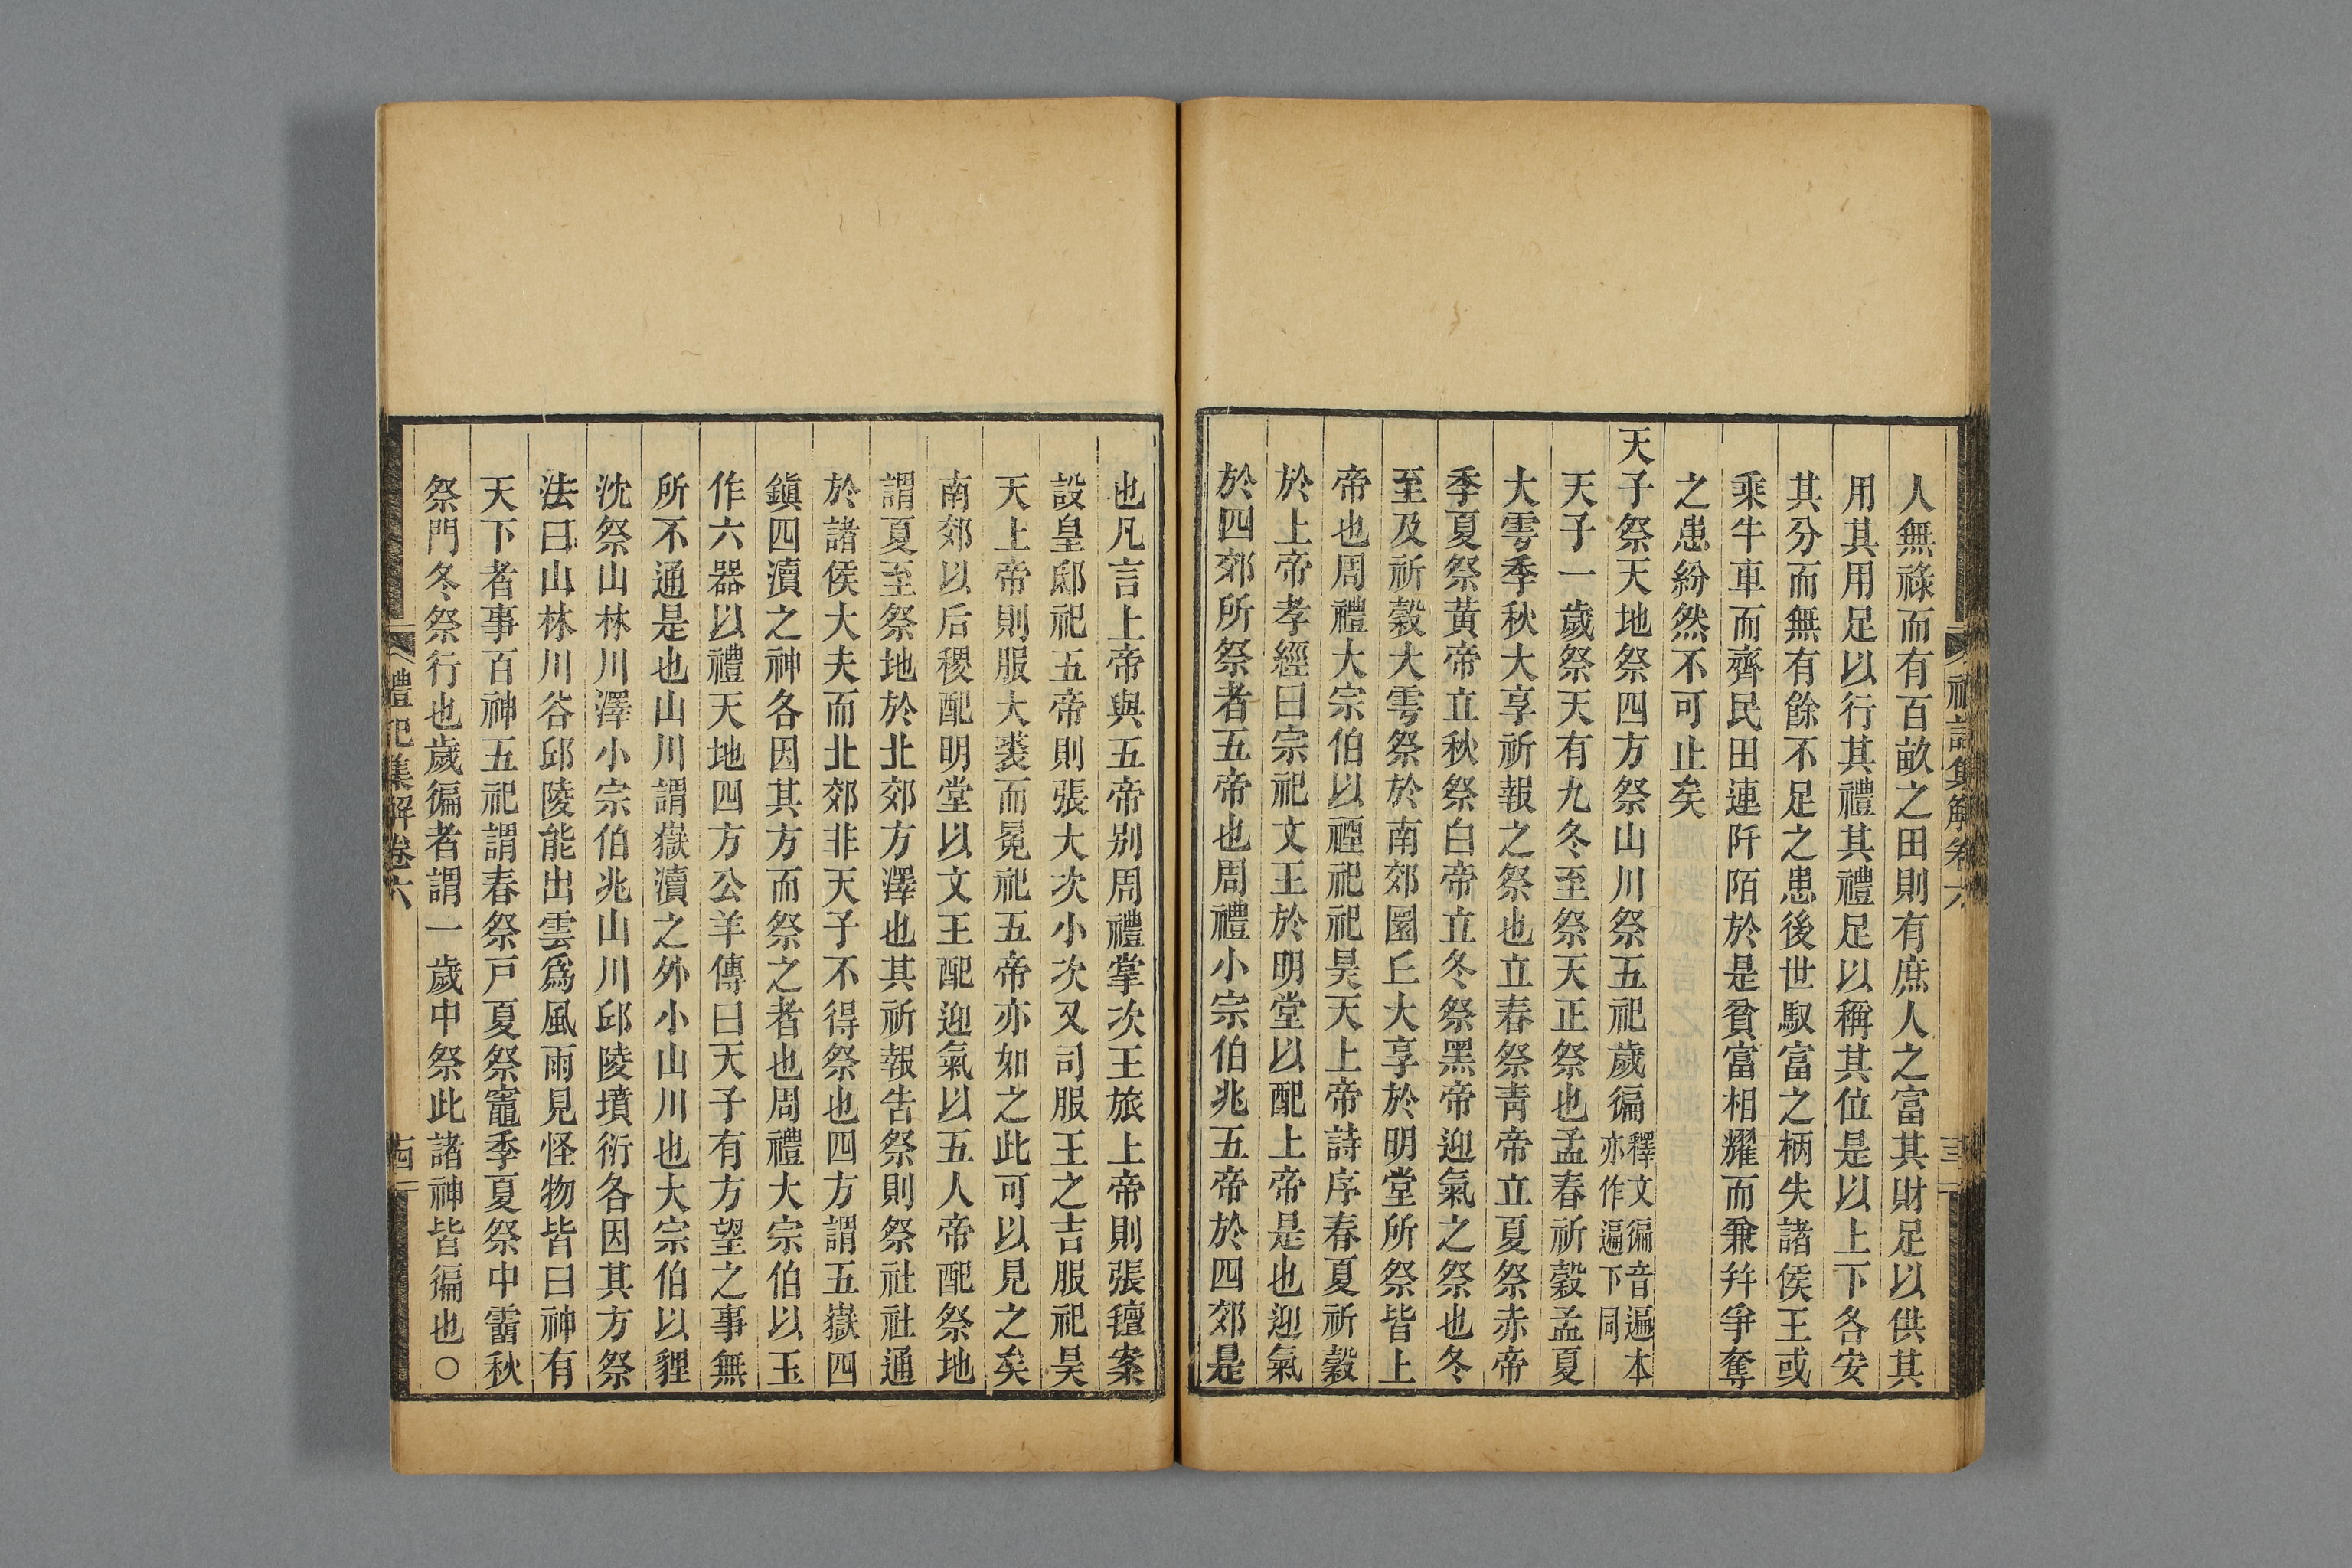 人無祿而有百畝之田則有庶人之富其財足以供其
用其用足以行其禮其禮足以稱其位是以上下各安
其分而無有餘不足之患後世馭富之柄失諸侯王或
乘牛車而齊民田連阡陌於是貧富相耀而兼幷爭奪
之患紛然不可止矣
天子祭天地祭四方祭山川祭五祀歲徧釋文徧音遍本
亦作遍下同
天子一歲祭天有九冬至祭天正祭也孟春祈穀孟夏
大雩季秋大享祈報之祭也立春祭靑帝立夏祭赤帝
季夏祭黃帝立秋祭白帝立冬祭黑帝迎氣之祭也冬
至及祈穀大雩祭於南郊圜丘大享於明堂所祭皆上
帝也周禮大宗伯以禋祀祀昊天上帝詩序春夏祈穀
於上帝孝經曰宗祀文王於明堂以配上帝是也迎氣
於四郊所祭者五帝也周禮小宗伯兆五帝於四郊是
也凡言上帝與五帝别周禮掌次王旅上帝則張氊案
設皇邸祀五帝則張大次小次又司服王之吉服祀昊
天上帝則服大裘而冕祀五帝亦如之此可以見之矣
南郊以后稷配明堂以文王配迎氣以五人帝配祭地
謂夏至祭地於北郊方澤也其祈報告祭則祭社社通
於諸侯大夫而北郊非天子不得祭也四方謂五嶽四
鎭四瀆之神各因其方而祭之者也周禮大宗伯以玉
作六器以禮天地四方公羊傳曰天子有方望之事無
所不通是也山川謂嶽瀆之外小山川也大宗伯以貍
沈祭山林川澤小宗伯兆山川邱陵墳衍各因其方祭
法曰山林川谷邱陵能出雲爲風雨見怪物皆曰神有
天下者事百神五祀謂春祭戸夏祭竈季夏祭中霤秋
祭門冬祭行也歲徧者謂一歲中祭此諸神皆徧也○
禮記集解卷六
古